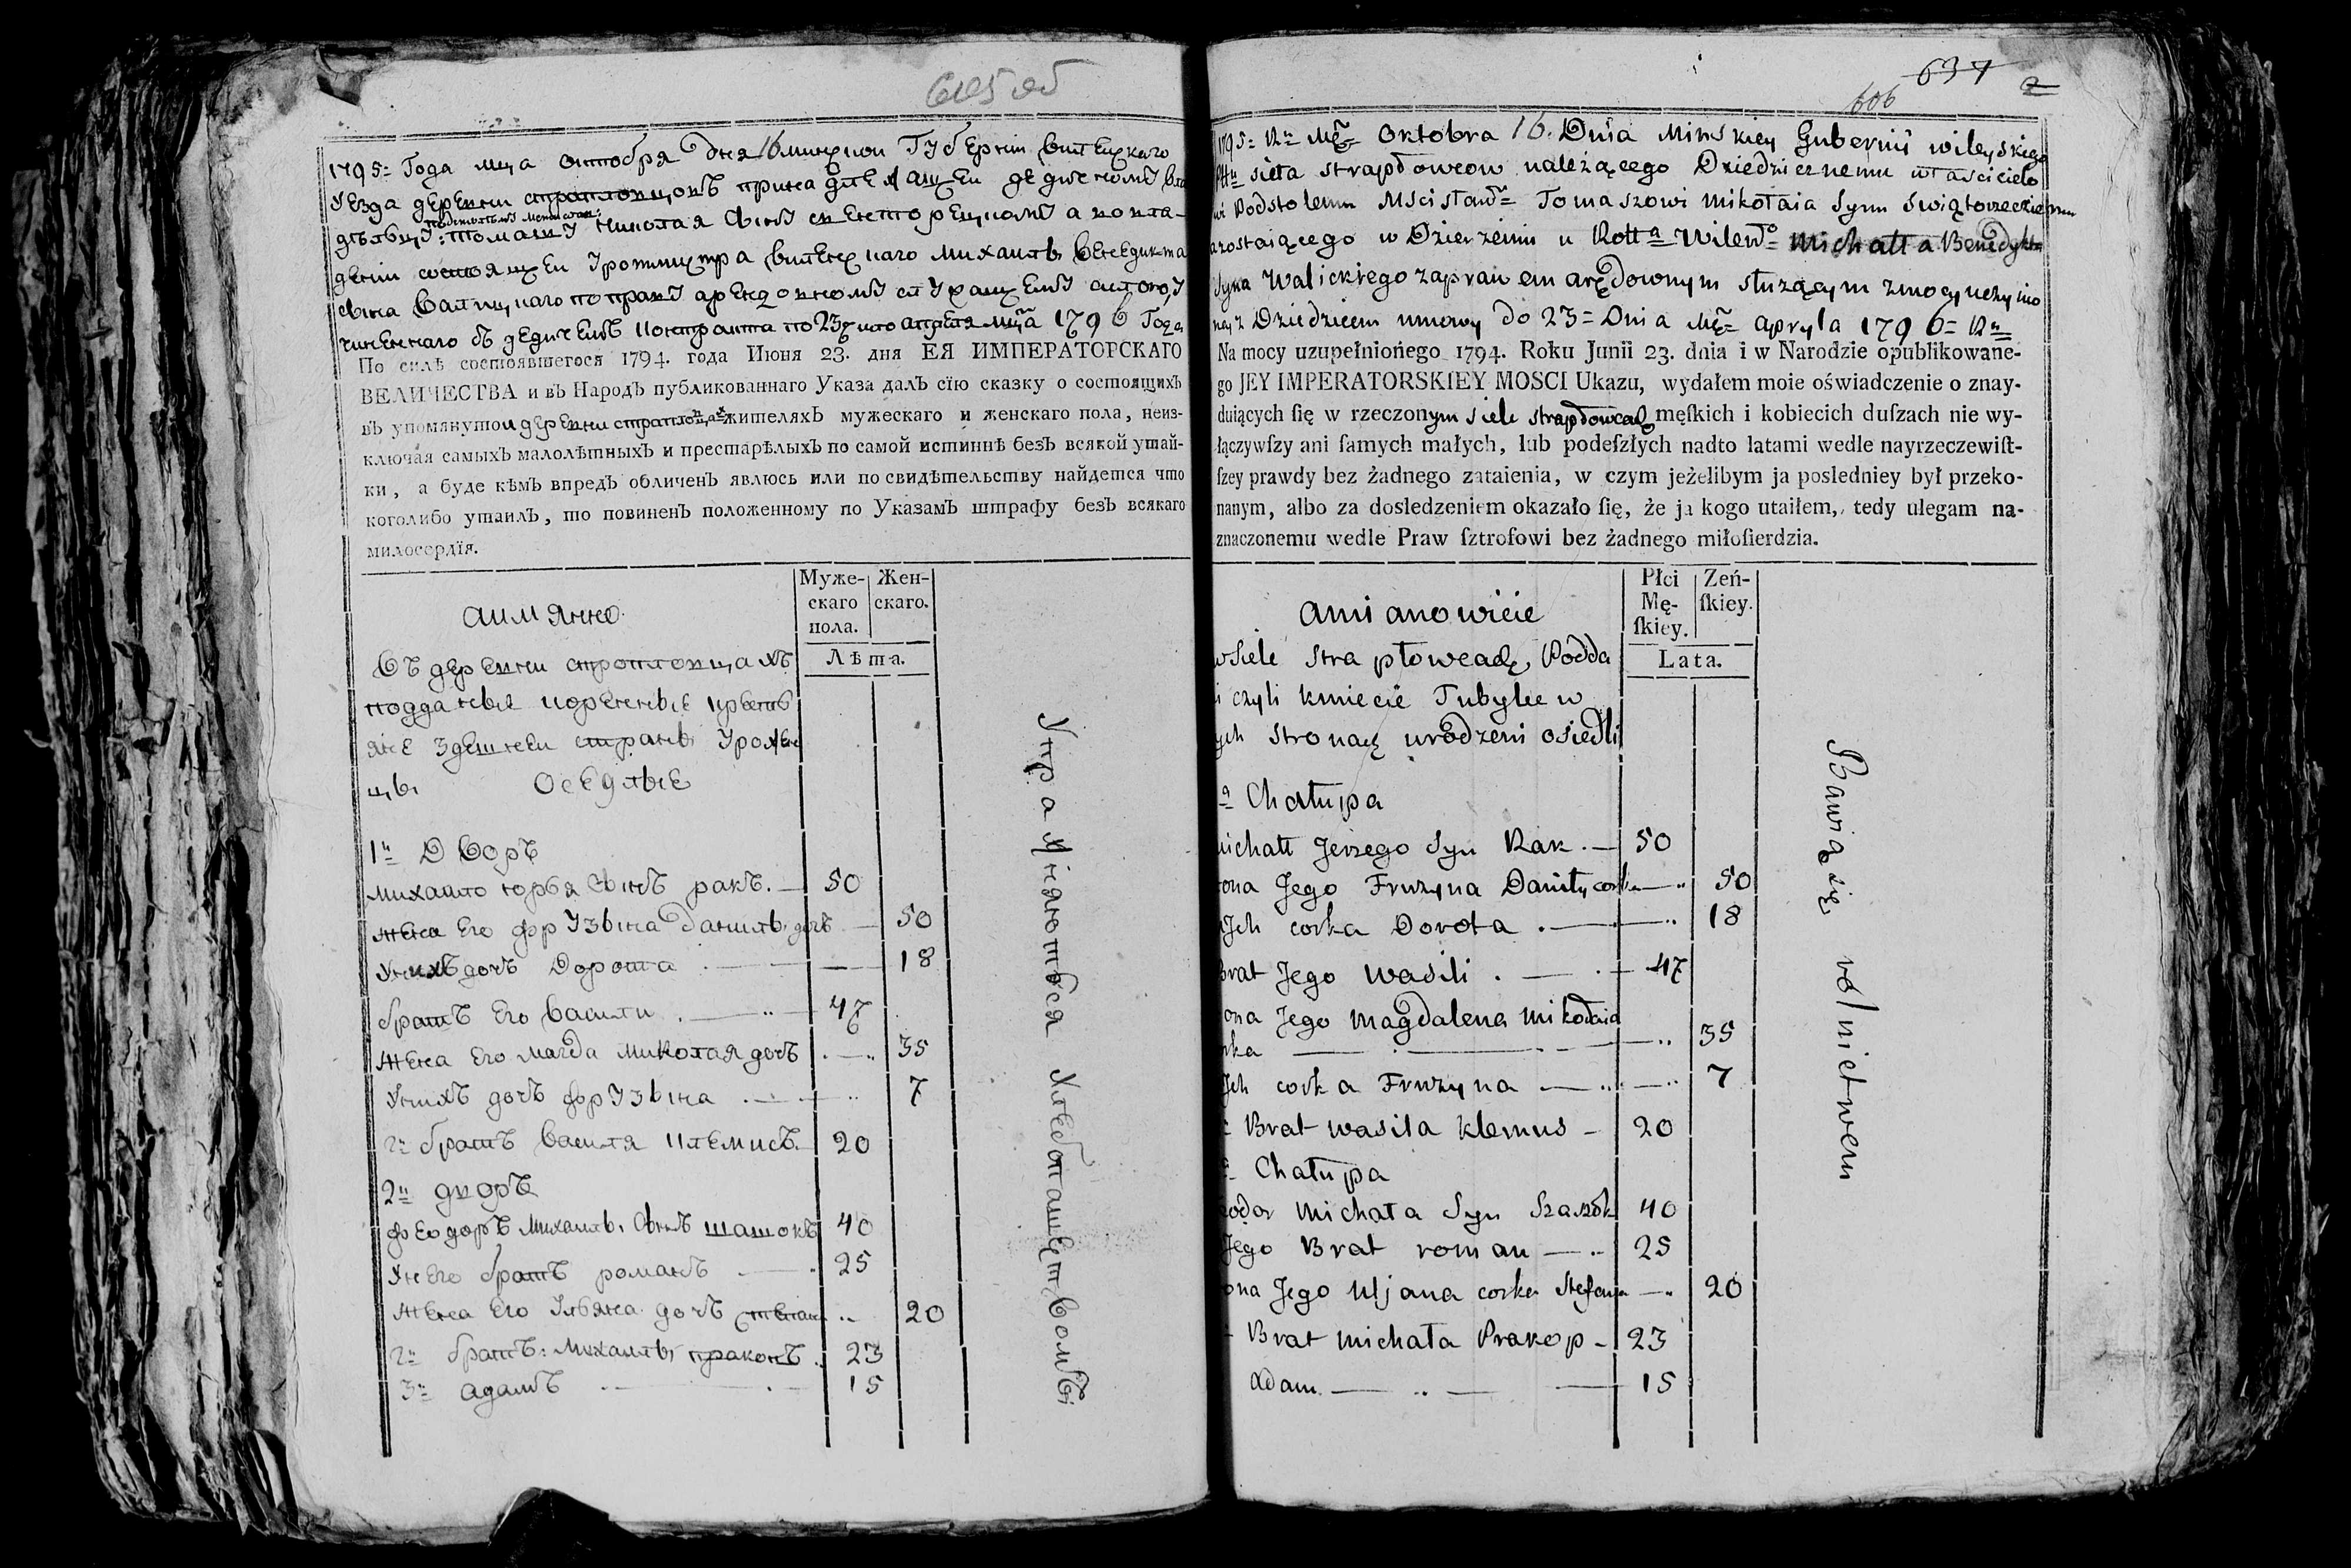 605 об
1795= Года мца октобря дня 16 минской Губернии вилейскаго
уезда деревни страпловцовъ принадлежащей дедичному вла
подстолему Мстислав:
детелю: Томашу Николая сыну свенторецкому а во вла-
дении состоящей у ротмистра виленскаго Михаила Бенедикта
сына валицкаго по праву арендовному служащему силою у
чиненнаго съ дедичемъ контракта по 23 число апреля мца 1796 Года
По силѣ состоявшегося 1794. года Июня 23. дня ЕЯ ИМПЕРАТОРСКАГО
ВЕЛИЧЕСТВА и въ Народъ публикованнаго Указа далъ сїю сказку о состоящихъ
въ упомянутой деревни страпловцахъ жителяхъ мужескаго и женскаго пола, неиз-
ключая самыхъ малолѣтныхъ и престарѣлыхъ по самой истиннѣ безъ всякой утай-
ки, а буде кѣмъ впредъ обличенъ явлюсь или по свидѣтельству найдется что
коголибо утаилъ, то повиненъ положенному по Указамъ штрафу безъ всякаго
милосердїя.
аимянно
Муже-
скаго
пола.
Жен-
скаго.
Лѣта.
Въ деревни страпловцахъ
подданые коренные крестъ
яне здешней страны урожен
цы оседлые
1й Дворъ
михайло юрья сынъ ракъ. 50
жена его фрузына данилы дочъ 50
у нихъ дочъ Дорота 18
братъ его василий 47
жена его магда миколая дочъ 35
у нихъ дочъ фрузына 7
2й братъ василя клемисъ 20
2й дворъ
феодоръ михайлы сынъ шашокъ 40
у него братъ романъ 25
жена его ульяна дочъ степана 20
2й братъ: михайлы, пракопъ 23
3й адамъ 15
Упражняются хлебопашетвомъ
637
606
1795= Ru Mca Oktobra 16. Dnia Minskiey Gubernii wileyskiego
Pttu sieła strapłowcow należącego Dziedzicznemu właścicielo
wi Podstolemu Mścisław= Tomaszowi Mikołaia Synu Swiątorzeckiemu
azostaiącego w Dzierzeniu u Rotta Wileno Michałła Benedykta
Syna Walickiego zaprawem arędownym służącym zmocy uczynio
ney z Dziedzicem umowy do 23= Dnia Mca apryla 1796= Ru
Na mocy uzupełniońego 1794. Roku Junii 23. dnia i w Narodzie opublikowane-
go JEY IMPERATORSKIEY MOSCI Ukazu, wydałem moie oświadczenie o znay-
duiących ſię w rzeczonym siele strapłowcach męſkich i kobiecich duſzach nie wy-
łączywſzy ani ſamych małych, lub podeſzłych nadto latami wedle nayrzeczewiſt-
ſzey prawdy bez żadnego zataienia, w czym jeżelibym ja posledniey był przeko-
nanym, albo za dosledzeniem okazało ſię, że ja kogo utaiłem, tedy ulegam na-
znaczonemu wedle Praw ſztrofowi bez żadnego miłoſierdzia.
amianowicie
Płci
Mę-
ſkiey.
Zeń-
ſkiey.
Lata.
wsiele strapłowcach Podda
i czyli kmiecie Tubylce w
ych stronach urodzeni osiedli
a Chałupa
michałł Jerzego Syn Rak 50
ona Jego Fruzyna Daniły corka 50
Ich corka Dorota 18
Brat Jego wasili 47
ona Jego Magdalena Mikołaia
rka 35
Ich corka Fruzyna 7
Brat wasila klemus 20
Chałupa
odor Michała Syn Szaszok 40
Jego Brat roman 25
ona Jego Uljana corka Stefana 20
Brat michała Prakop 23
Adam 15
Bawią się rolnictwem